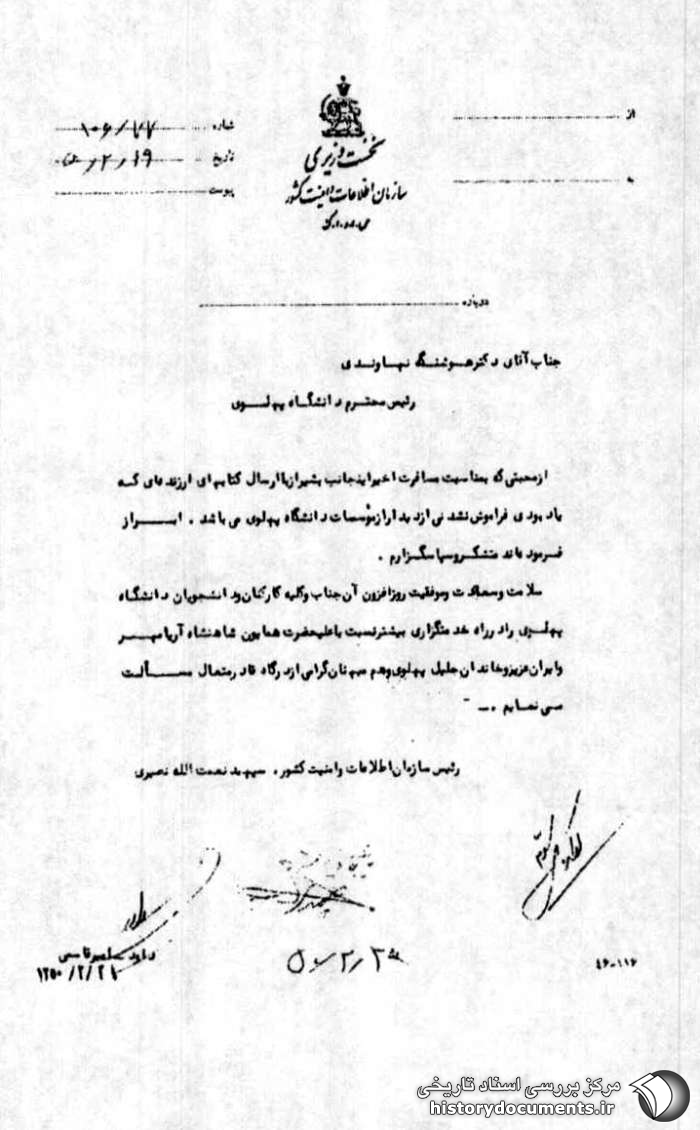 از
به
شماره ۱۰۶/۷۷
تاریخ ۵۰/۲/۱۹
پیوست
نخست وزیری
سازمان اطلاعات و امنیت کشور
س.ا.و.ا.ک
درباره
جناب آقای دکتر هوشنگ نهاوندی
رئیس محترم دانشگاه پهلوی
از محبتی که بمناسبت مسافرت اخیر اینجانب بشیراز با ارسال کتابهای ارزنده‌ای که
یادبودی فراموش نشدنی از دیدار از مؤسسات دانشگاه پهلوی می باشد . ابراز
فرموده‌اند متشکر و سپاسگزارم .
سلامت و سعادت و موفقیت روزافزون آن جناب و کلیه کارکنان و دانشجویان دانشگاه
پهلوی را در راه خدمتگزاری بیشتر نسبت باعلیحضرت همایون شاهنشاه آریامهر
و ایران عزیز و خاندان جلیل پهلوی و هم میهنان گرامی از درگاه قادر متعال مسألت
می نمایم .
رئیس سازمان اطلاعات و امنیت کشور . سپهبد نعمت الله نصیری
۱۳۵۰/۲/۲۱
۵۰/۲/۲۰
۴۶-۱۱۶
مرکز بررسی اسناد تاریخی
historydocuments.ir